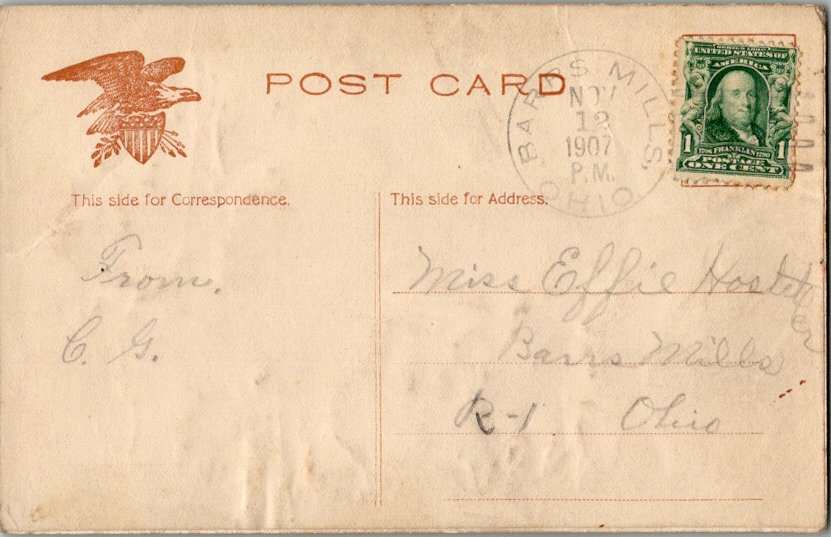 POST CARD
BARRS MILLS, OHIO
NOV
12
1907
P.M.
SERIES 1902
UNITED STATES OF
AMERICA
1 1706 FRANKLIN 1790 1
POSTAGE
ONE CENT
This side for Correspondence.
This side for Address.
From.
C. G.
Miss Effie Hostetler
Barrs Mills
R-1 Ohio